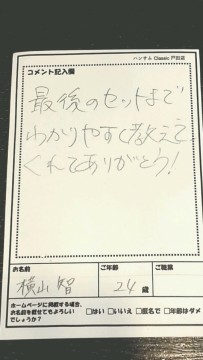 ハンサム Classic 戸田店
コメント記入欄
最後のセットまで
わかりやすく教えて
くれてありがとう!
お名前 ご年齢 ご職業
横山 智 24 歳
ホームページに掲載する場合、
お名前を載せてもよろしい
でしょうか? □はい □いいえ □匿名で □年齢はダメ